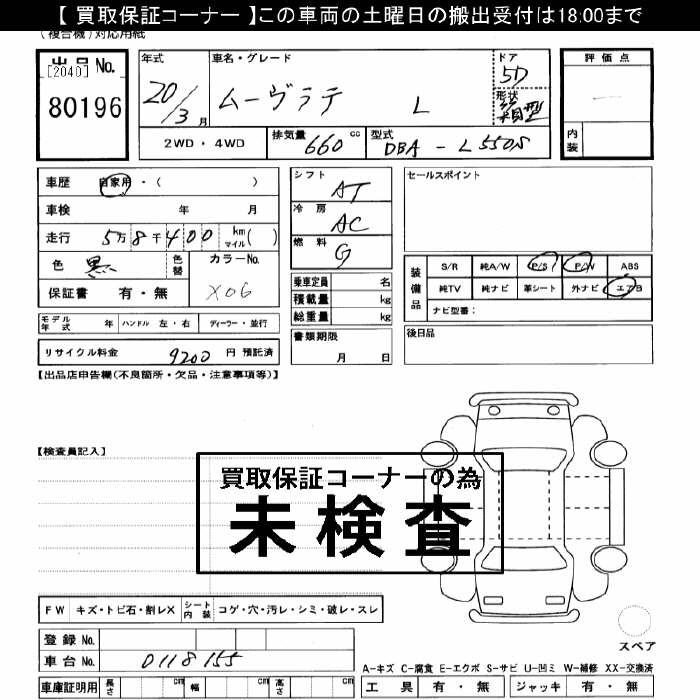 【 買取保証コーナー 】この車両の土曜日の搬出受付は18:00まで
(複合機)対応用紙
出品 No.
[2040]
80196
年式
20/3月
車名・グレード
ムーヴラテ L
ドア
5D
形状
箱型
評価点
内装
2WD・4WD
排気量 660 cc
型式 DBA - L550S
車歴 自家用・( )
車検 年 月
走行 5万8千400 km マイル( )
色 黒 色替
カラーNo.
X06
保証書 有・無
シフト AT
冷房 AC
燃料 G
乗車定員 名
積載量 kg
総重量 kg
セールスポイント
装備品
S/R 純A/W P/S P/W ABS
純TV 純ナビ 革シート 外ナビ エアB
ナビ型番:
モデル年式 年 ハンドル 左・右 ディーラー・並行
書類期限
月 日
後日品
リサイクル料金 9200 円 預託済
【出品店申告欄(不良箇所・欠品・注意事項等)】
【検査員記入】
買取保証コーナーの為
未検査
FW キズ・トビ石・割レX シート内装 コゲ・穴・汚レ・シミ・破レ・スレ
登録 No.
車台 No. 0118155
車庫証明用 長さ cm 幅 cm 高さ cm
スペア
A-キズ C-腐食 E-エクボ S-サビ U-凹ミ W-補修 XX-交換済
工具 有・無 ジャッキ 有・無